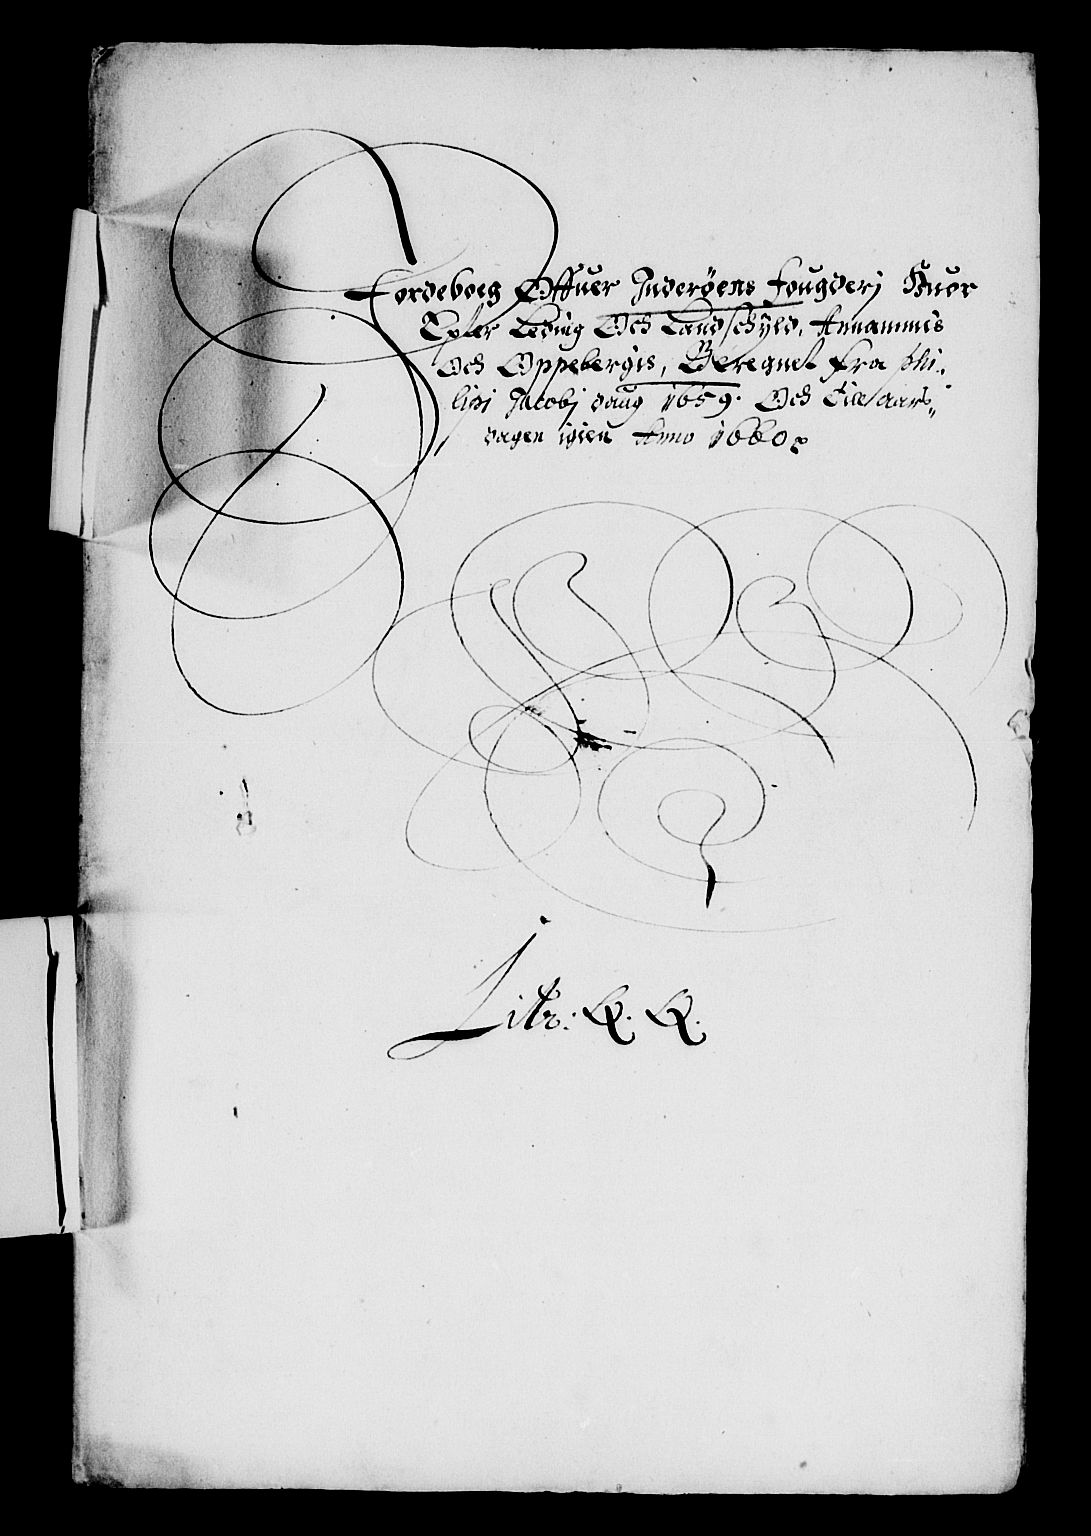 Jordeboeg Offuer Inderøens fougderj Huor
Epter Leding Och Landschyld, Annammis
Och Oppebergis, Beregnet fra phi-
lipi Jacobj daug 1659. Och Till aars„
dagen igien Anno 1660
Litr: Q. Q.